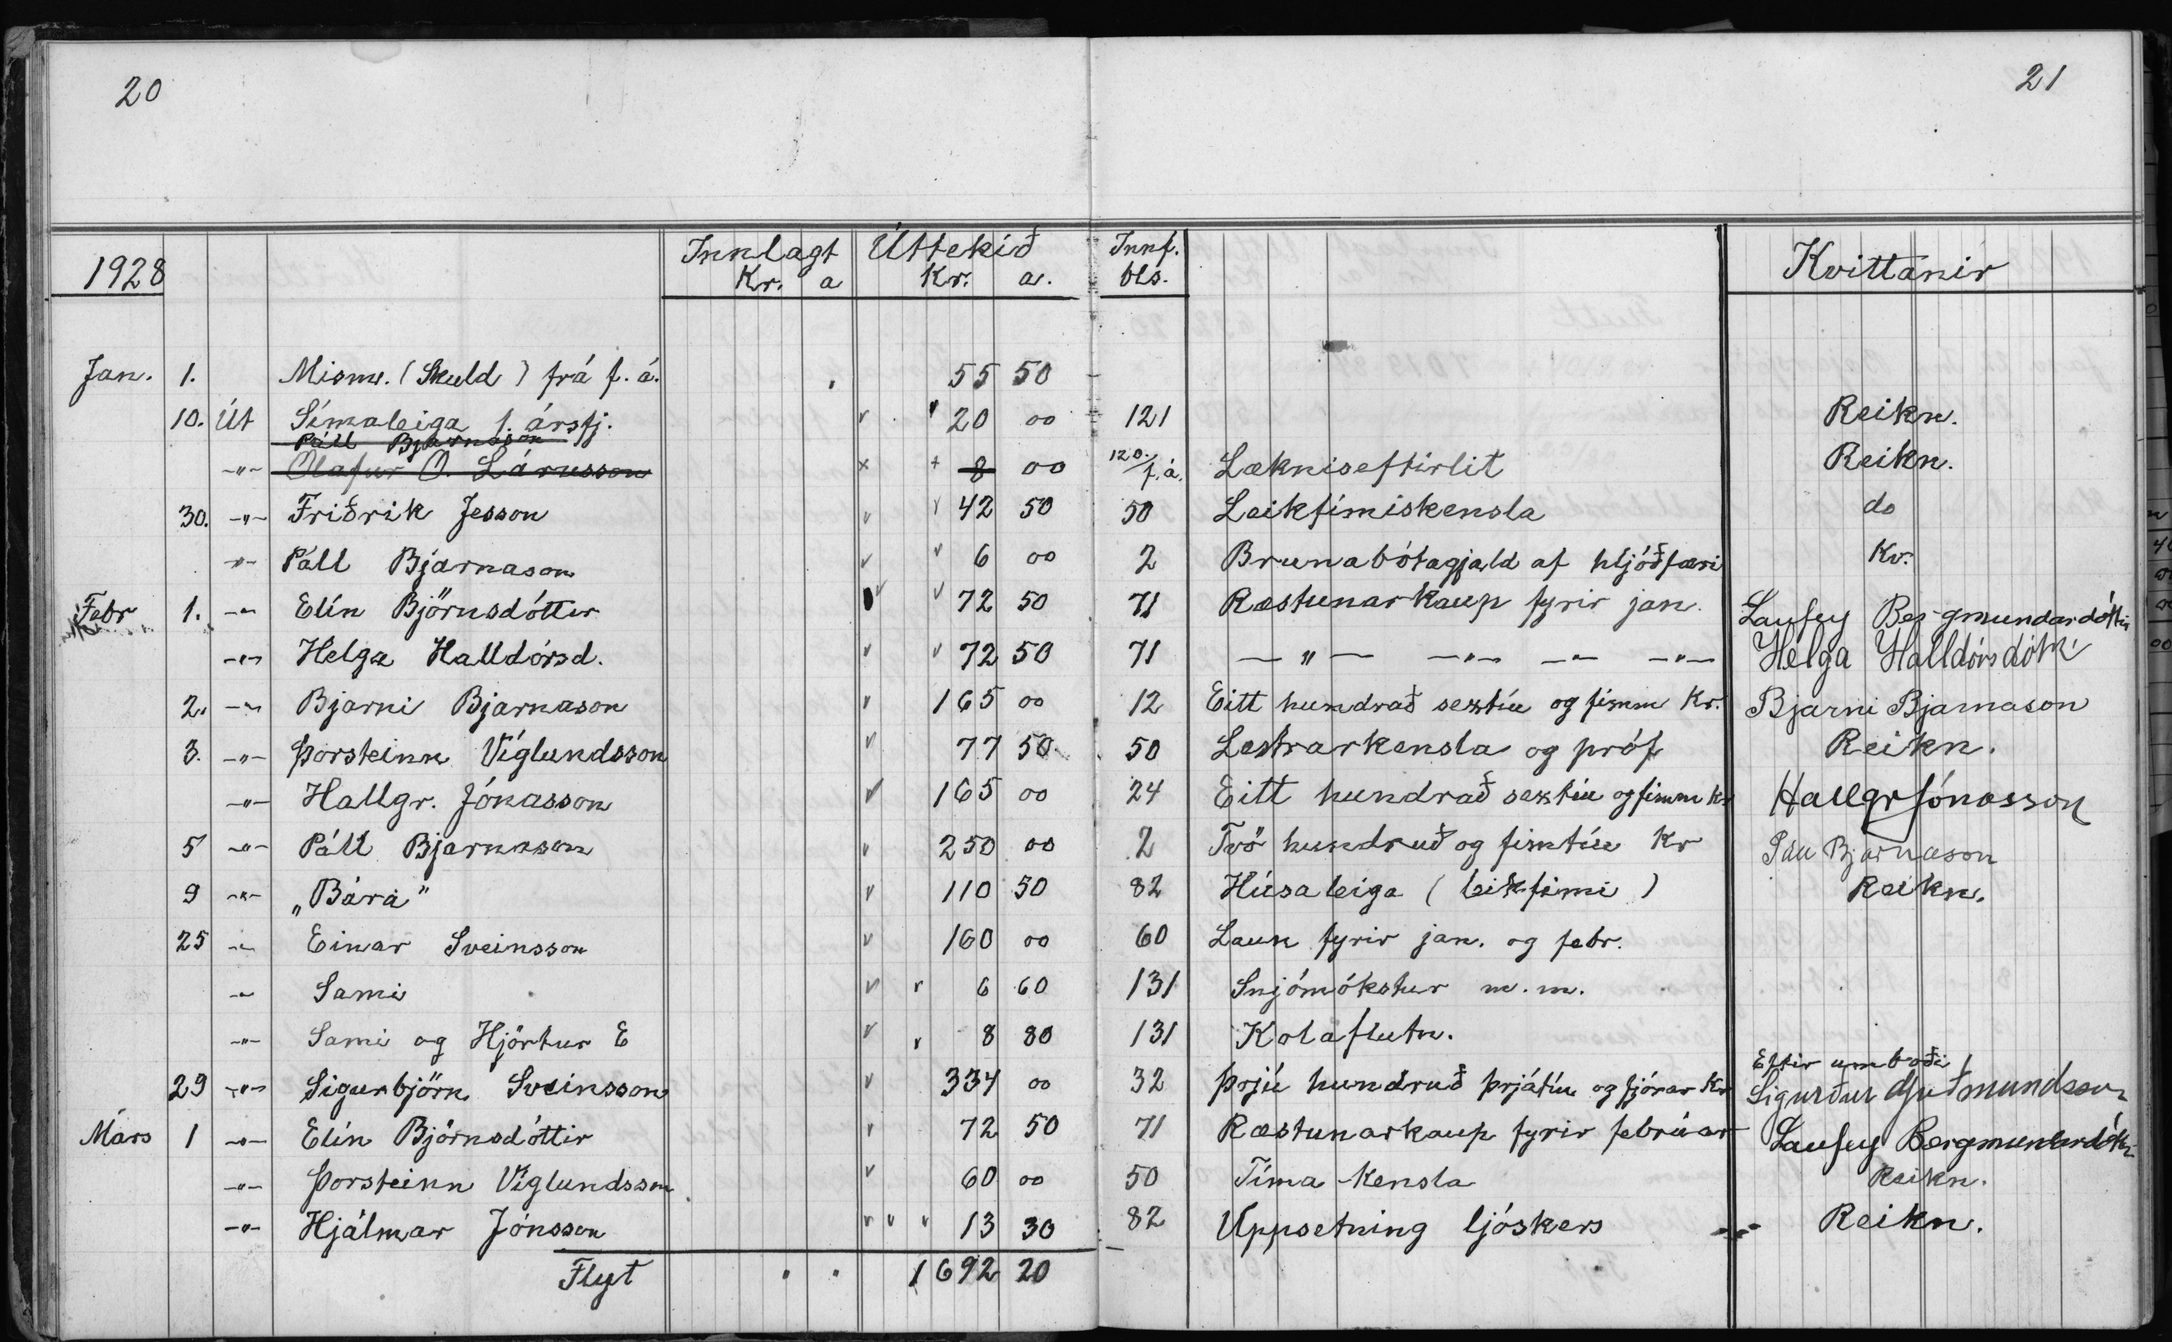 20
21
1928 Innlagt Úttekið Innf. Kvittanir
Kr. a Kr. a. bls.
Jan. 1. Mism. (Skuld) frá f. á. 55 50
10. Út Símaleiga 1. ársfj. 20 00 121 Reikn.
Páll Bjarnason
-"- Ólafur Ó. Lárusson 8 00 120./f.á. Lækniseftirlit Reikn.
30. -"- Friðrik Jesson 42 50 50 Leikfimiskensla do
-"- Páll Bjarnason 6 00 2 Brunabótagjald af hljóðfæri Kv.
Febr 1. -"- Elín Björnsdóttir 72 50 71 Ræstunarkaup fyrir jan. Laufey Bergmundardóttir
-"- Helga Halldórsd. 72 50 71 -"- -"- -"- -"- Helga Halldórsdóttir
2. -"- Bjarni Bjarnason 165 00 12 Eitt hundrað sextíu og fimm kr. Bjarni Bjarnason
3. -"- Þorsteinn Víglundsson 77 50 50 Lestrarkensla og próf Reikn.
-"- Hallgr. Jónasson 165 00 24 Eitt hundrað sextíu og fimm kr Hallgr Jónasson
5 -"- Páll Bjarnason 250 00 2 Tvö hundruð og fimtíu kr Páll Bjarnason
9 -"- „Bára" 110 50 82 Húsaleiga (leikfimi) Reikn.
25 -"- Einar Sveinsson 160 00 60 Laun fyrir jan. og febr.
-"- Sami 6 60 131 Snjómókstur m.m.
-"- Sami og Hjörtur E 8 80 131 Kolaflutn.
Eftir umboði
29 -"- Sigurbjörn Sveinsson 334 00 32 Þrjú hundruð þrjátíu og fjórar Kr Sigurður Guðmundsson
Mars 1 -"- Elín Björnsdóttir 72 50 71 Ræstunarkaup fyrir febrúar Laufey Bergmundardóttir
-"- Þorsteinn Víglundsson 60 00 50 Tíma-kensla Reikn.
-"- Hjálmar Jónsson 13 30 82 Uppsetning ljóskers Reikn.
Flyt 1692 20